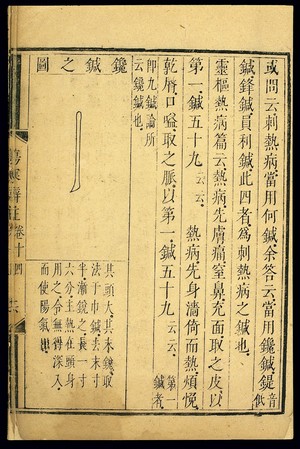 或問云刺熱病當用何鍼余答云當用鑱鍼鍉音低
鍼鋒鍼員利鍼此四者爲刺熱病之鍼也
靈樞熱病篇云熱病先膚痛窒鼻充面取之皮以
第一鍼五十九云云熱病先身濇倚而熱煩悗
乾脣口嗌取之脈以第一鍼五十九云云第一鍼者
卽九鍼論所
云鑱鍼也
鑱鍼之圖
其頭大其末銳取
法于巾鍼去末寸
半漸銳之長一寸
六分主熱在頭身
用之令無得深入
而使陽氣出
卷十四